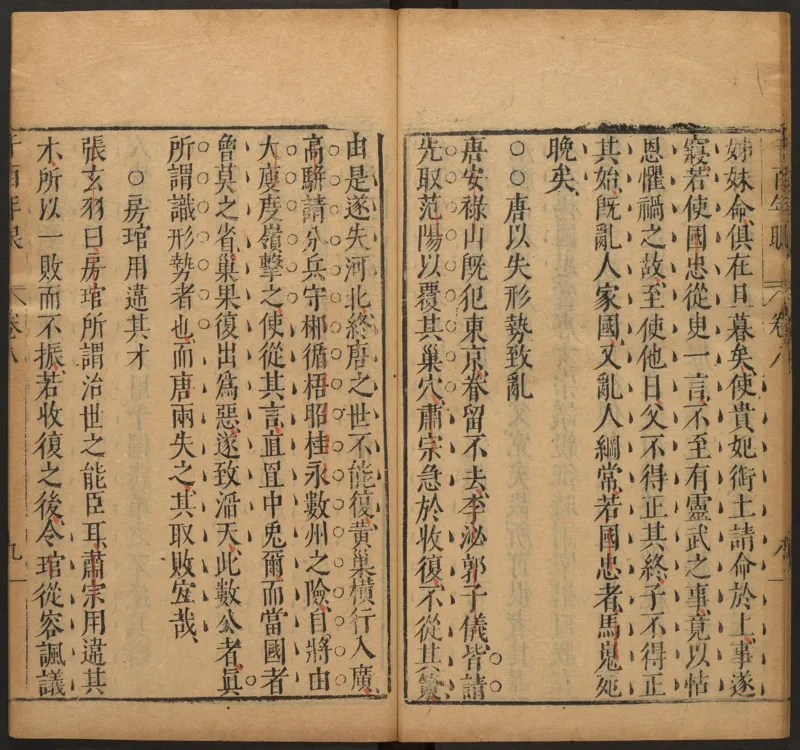 姊妹命俱在旦暮矣使貴妃銜土請命於上事遂
寢若使國忠從史一言不至有靈武之事竟以怙
恩懼禍之故至使他日父不得正其終子不得正
其始旣亂人家國又亂人綱常若國忠者馬嵬死
晚矣
○○唐以失形勢致亂
唐安祿山旣犯東京眷留不去李泌郭子儀皆請
先取范陽以覆其巢穴肅宗急於收復不從其策
由是遂失河北終唐之世不能復黃巢橫行入廣
高騈請分兵守郴循梧昭桂永數州之險自將由
大庾度嶺擊之使從其言直罝中兎爾而當國者
曾莫之省巢果復出爲惡遂致滔天此數公者眞
所謂識形勢者也而唐兩失之其取敗宜哉
○房琯用違其才
張玄羽曰房琯所謂治世之能臣耳肅宗用違其
木所以一敗而不振若收復之後令琯從容諷議
千百年眼
卷八
九